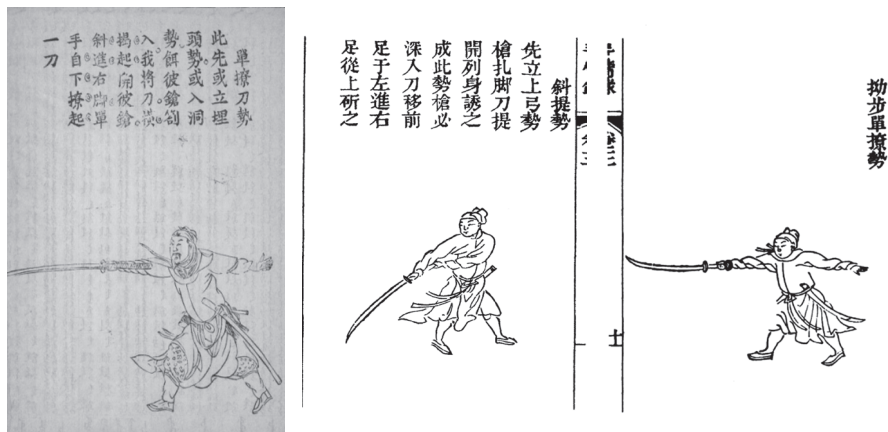 單撩刀勢
此先或立埋
頭勢或入洞
勢餌彼鎗劄
入我將刀横
揭起開彼鎗
斜進右脚單
手自下撩起
一刀
拗步單撩勢
斜提勢
先立上弓勢
槍扎脚刀提
開列身誘之
成此勢槍必
深入刀移前
足于左進右
足從上斫之